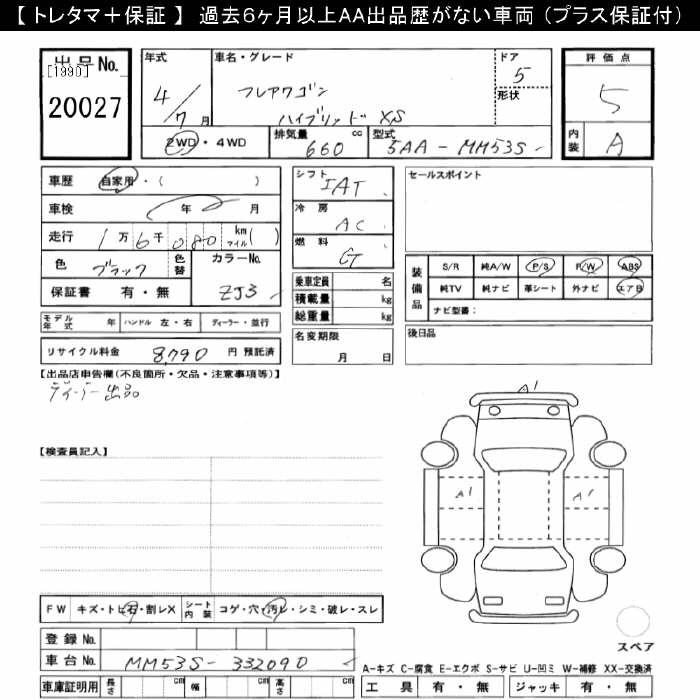 【 トレタマ＋保証 】 過去6ヶ月以上AA出品歴がない車両（プラス保証付）
出品No.
[1990]
20027
年式
4/7月
車名・グレード
フレアワゴン
ハイブリッド XS
ドア
5
形状
2WD・4WD
排気量 660 cc
型式 5AA-MM53S
評価点
5
内装 A
車歴 自家用・( )
車検 年 月
走行 1万6千080 km マイル( )
色 ブラック
色替
カラーNo.
ZJ3
保証書 有・無
シフト IAT
冷房 AC
燃料 G
乗車定員 名
積載量 kg
総重量 kg
セールスポイント
装備品
S/R 純A/W P/S P/W ABS
純TV 純ナビ 革シート 外ナビ エアB
ナビ型番：
モデル年式 年 ハンドル 左・右 ディーラー・並行
リサイクル料金 8,790 円 預託済
名変期限
月 日
後日品
【出品店申告欄（不良箇所・欠品・注意事項等）】
ディーラー出品
A1
【検査員記入】
A1
A1
FW キズ・トビ石・割レX シート内装 コゲ・穴・汚レ・シミ・破レ・スレ
登録No.
車台No. MM53S-332090
スペア
A-キズ C-腐食 E-エクボ S-サビ U-凹ミ W-補修 XX-交換済
車庫証明用 長さ cm 幅 cm 高さ cm
工具 有・無 ジャッキ 有・無